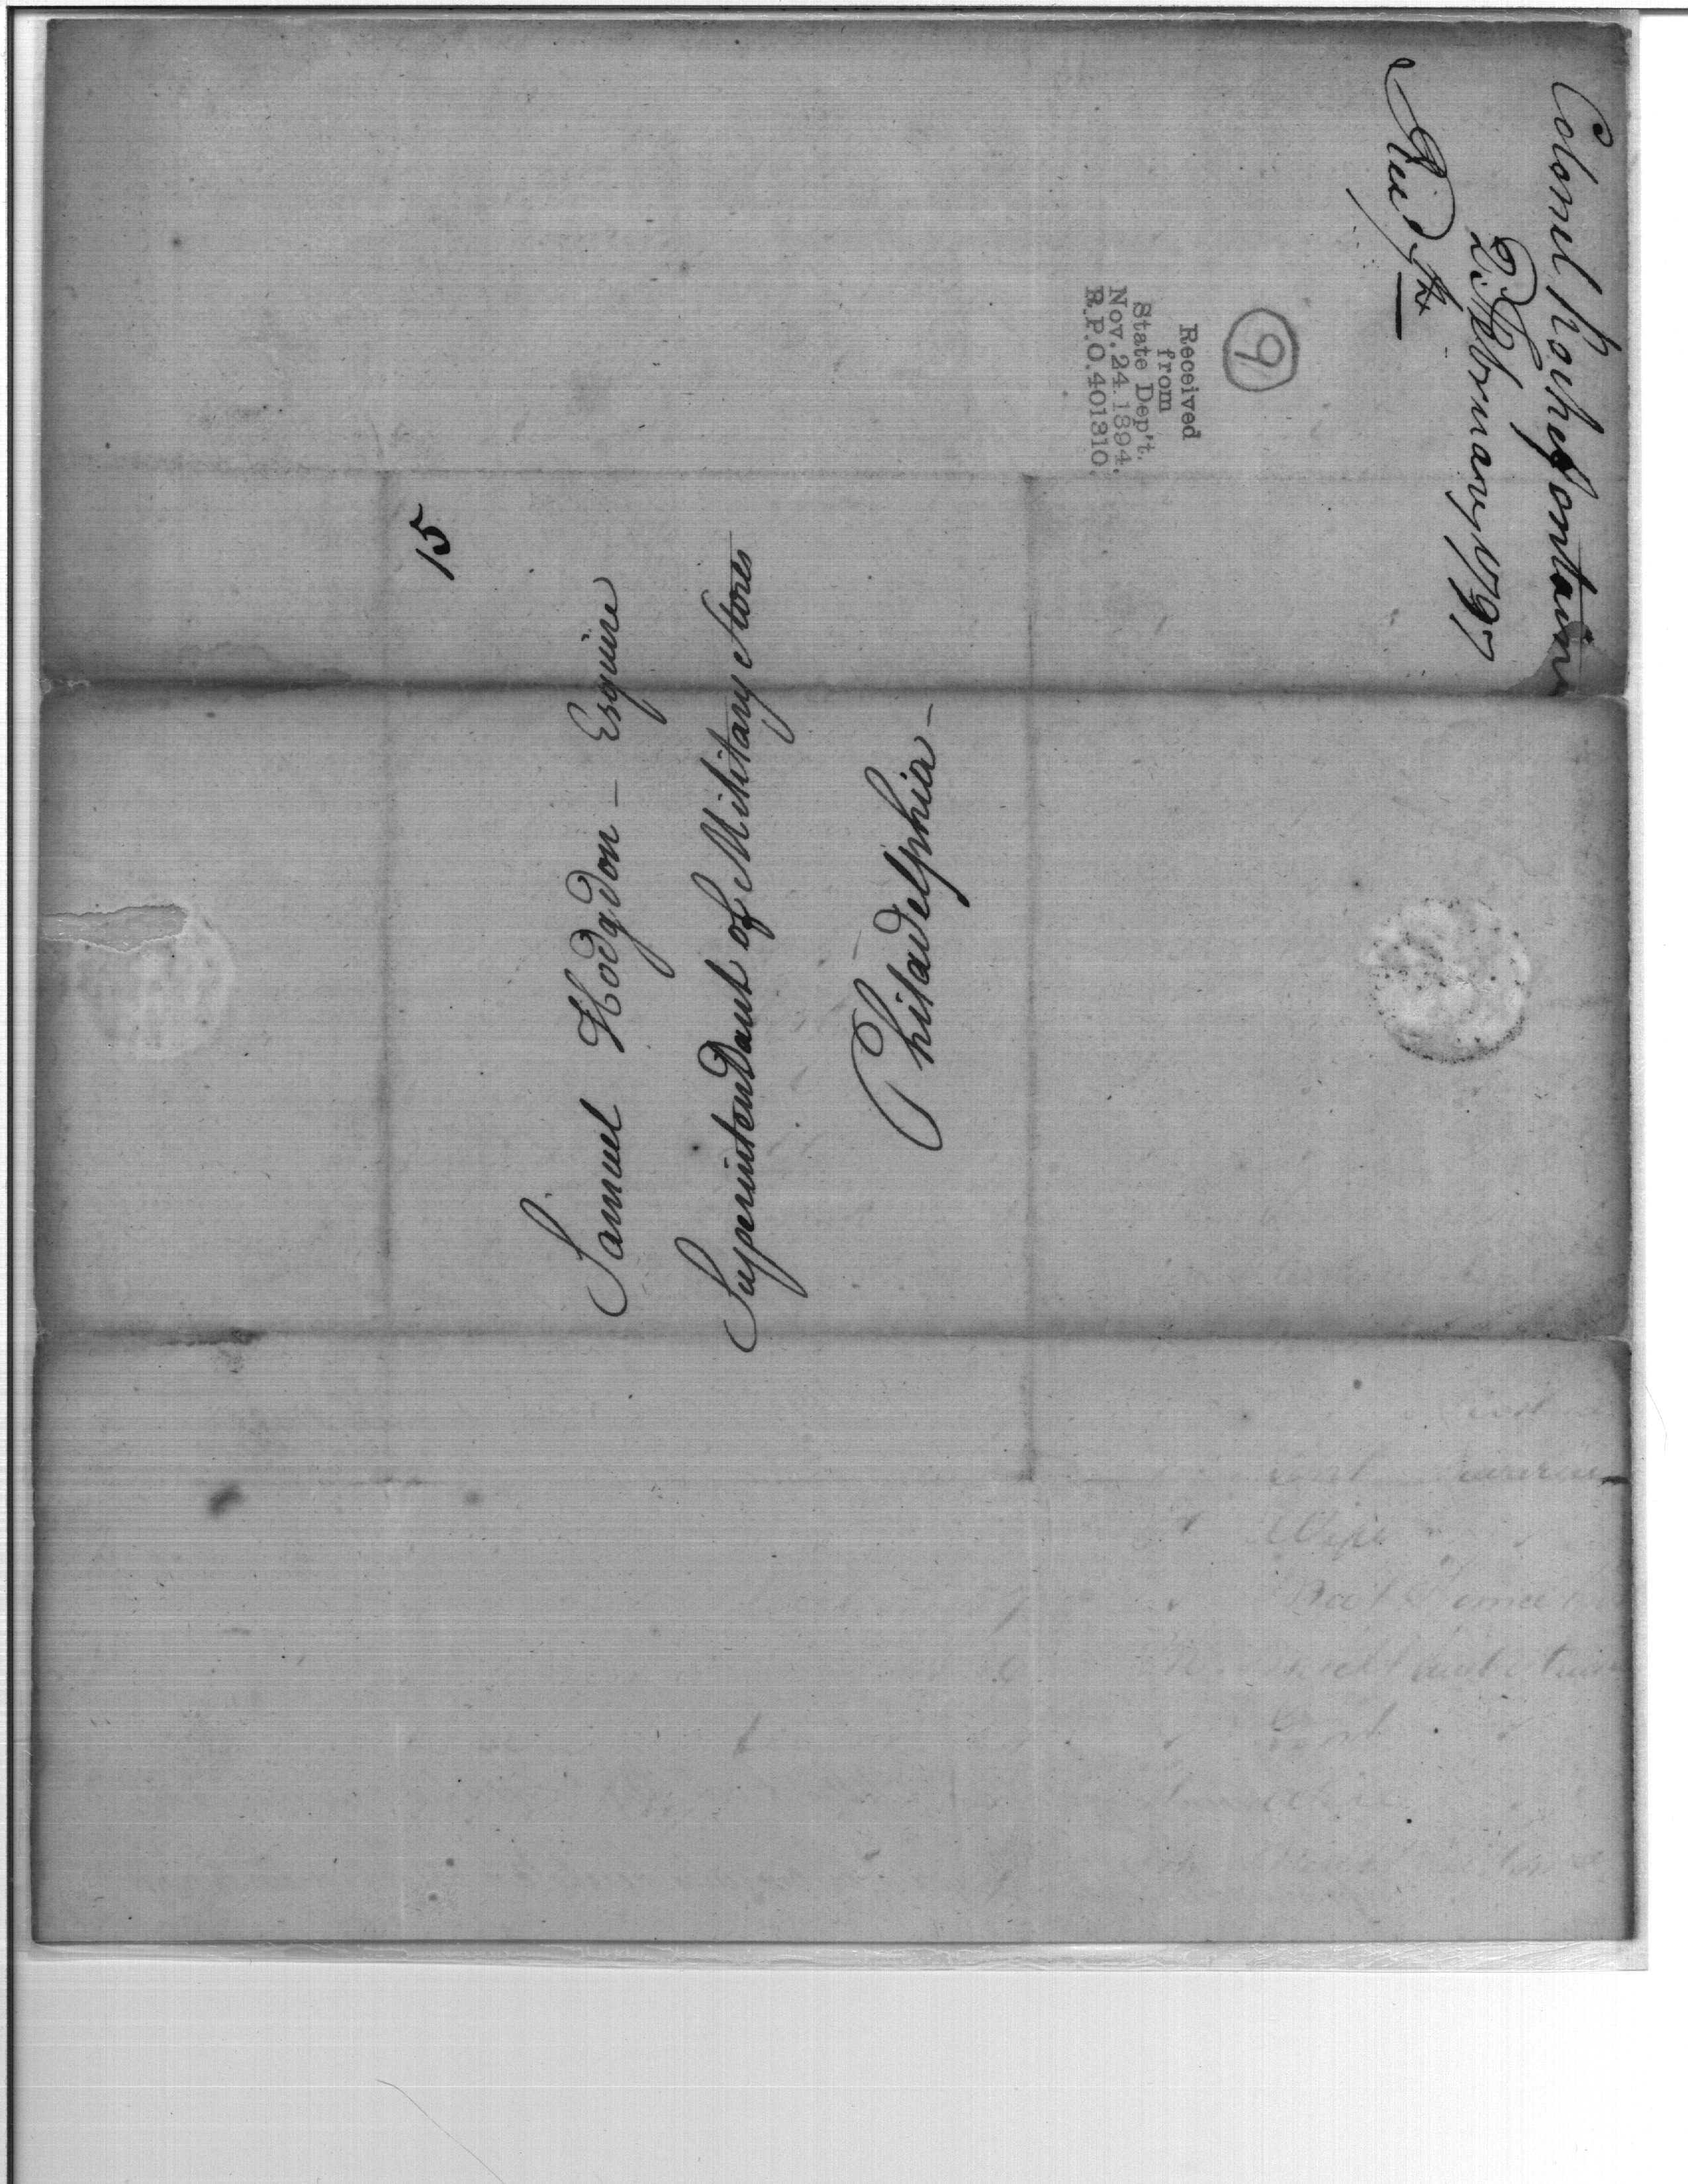 Colonel Rochefontain
2. February 1797
Rec'd 
9
Received
from
State Dep't.
Nov. 24. 1894.
R.P.O. 401310.
15
Samuel Hodgdon – Esquire
Superintendant of Military Stores
Philadelphia –